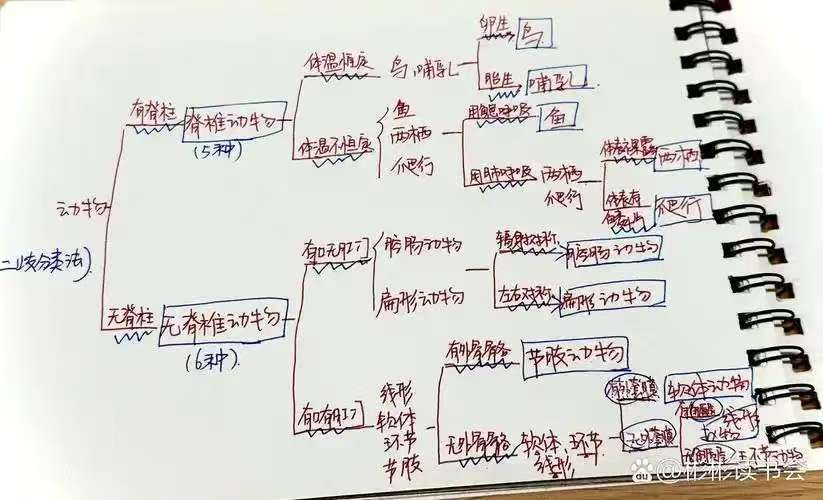 动物
(二歧分类法)
有脊柱
脊椎动物
(5种)
体温恒定
鸟,哺乳
卵生
鸟
胎生
哺乳
体温不恒定
鱼
两栖
爬行
用鳃呼吸
鱼
用肺呼吸
两栖
爬行
体表裸露
两栖
体表有
爬行
无脊柱
无脊椎动物
(6种)
有口无肛门
腔肠动物
扁形动物
辐射对称
腔肠动物
左右对称
扁形动物
有口有肛门
线形
软体
环节
节肢
有外骨骼
节肢动物
无外骨骼
软体、环节
线形
有外套膜
软体动物
无外套膜
线形
动物
环节动物
@彬彬读书会